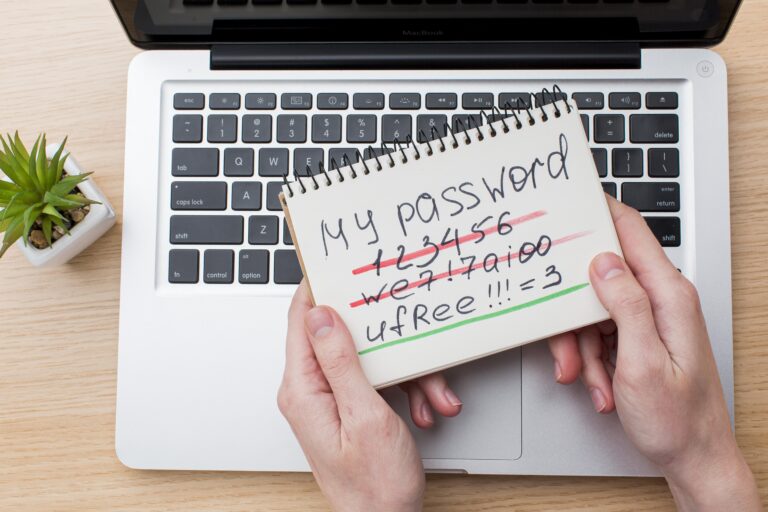 MacBook
esc
! 1 @ 2 # 3 $ 4 % 5 + = delete
tab Q W
caps lock A return enter
shift Z shift
fn control option
My password
123456
we7!7aioo
ufRee!!!=3